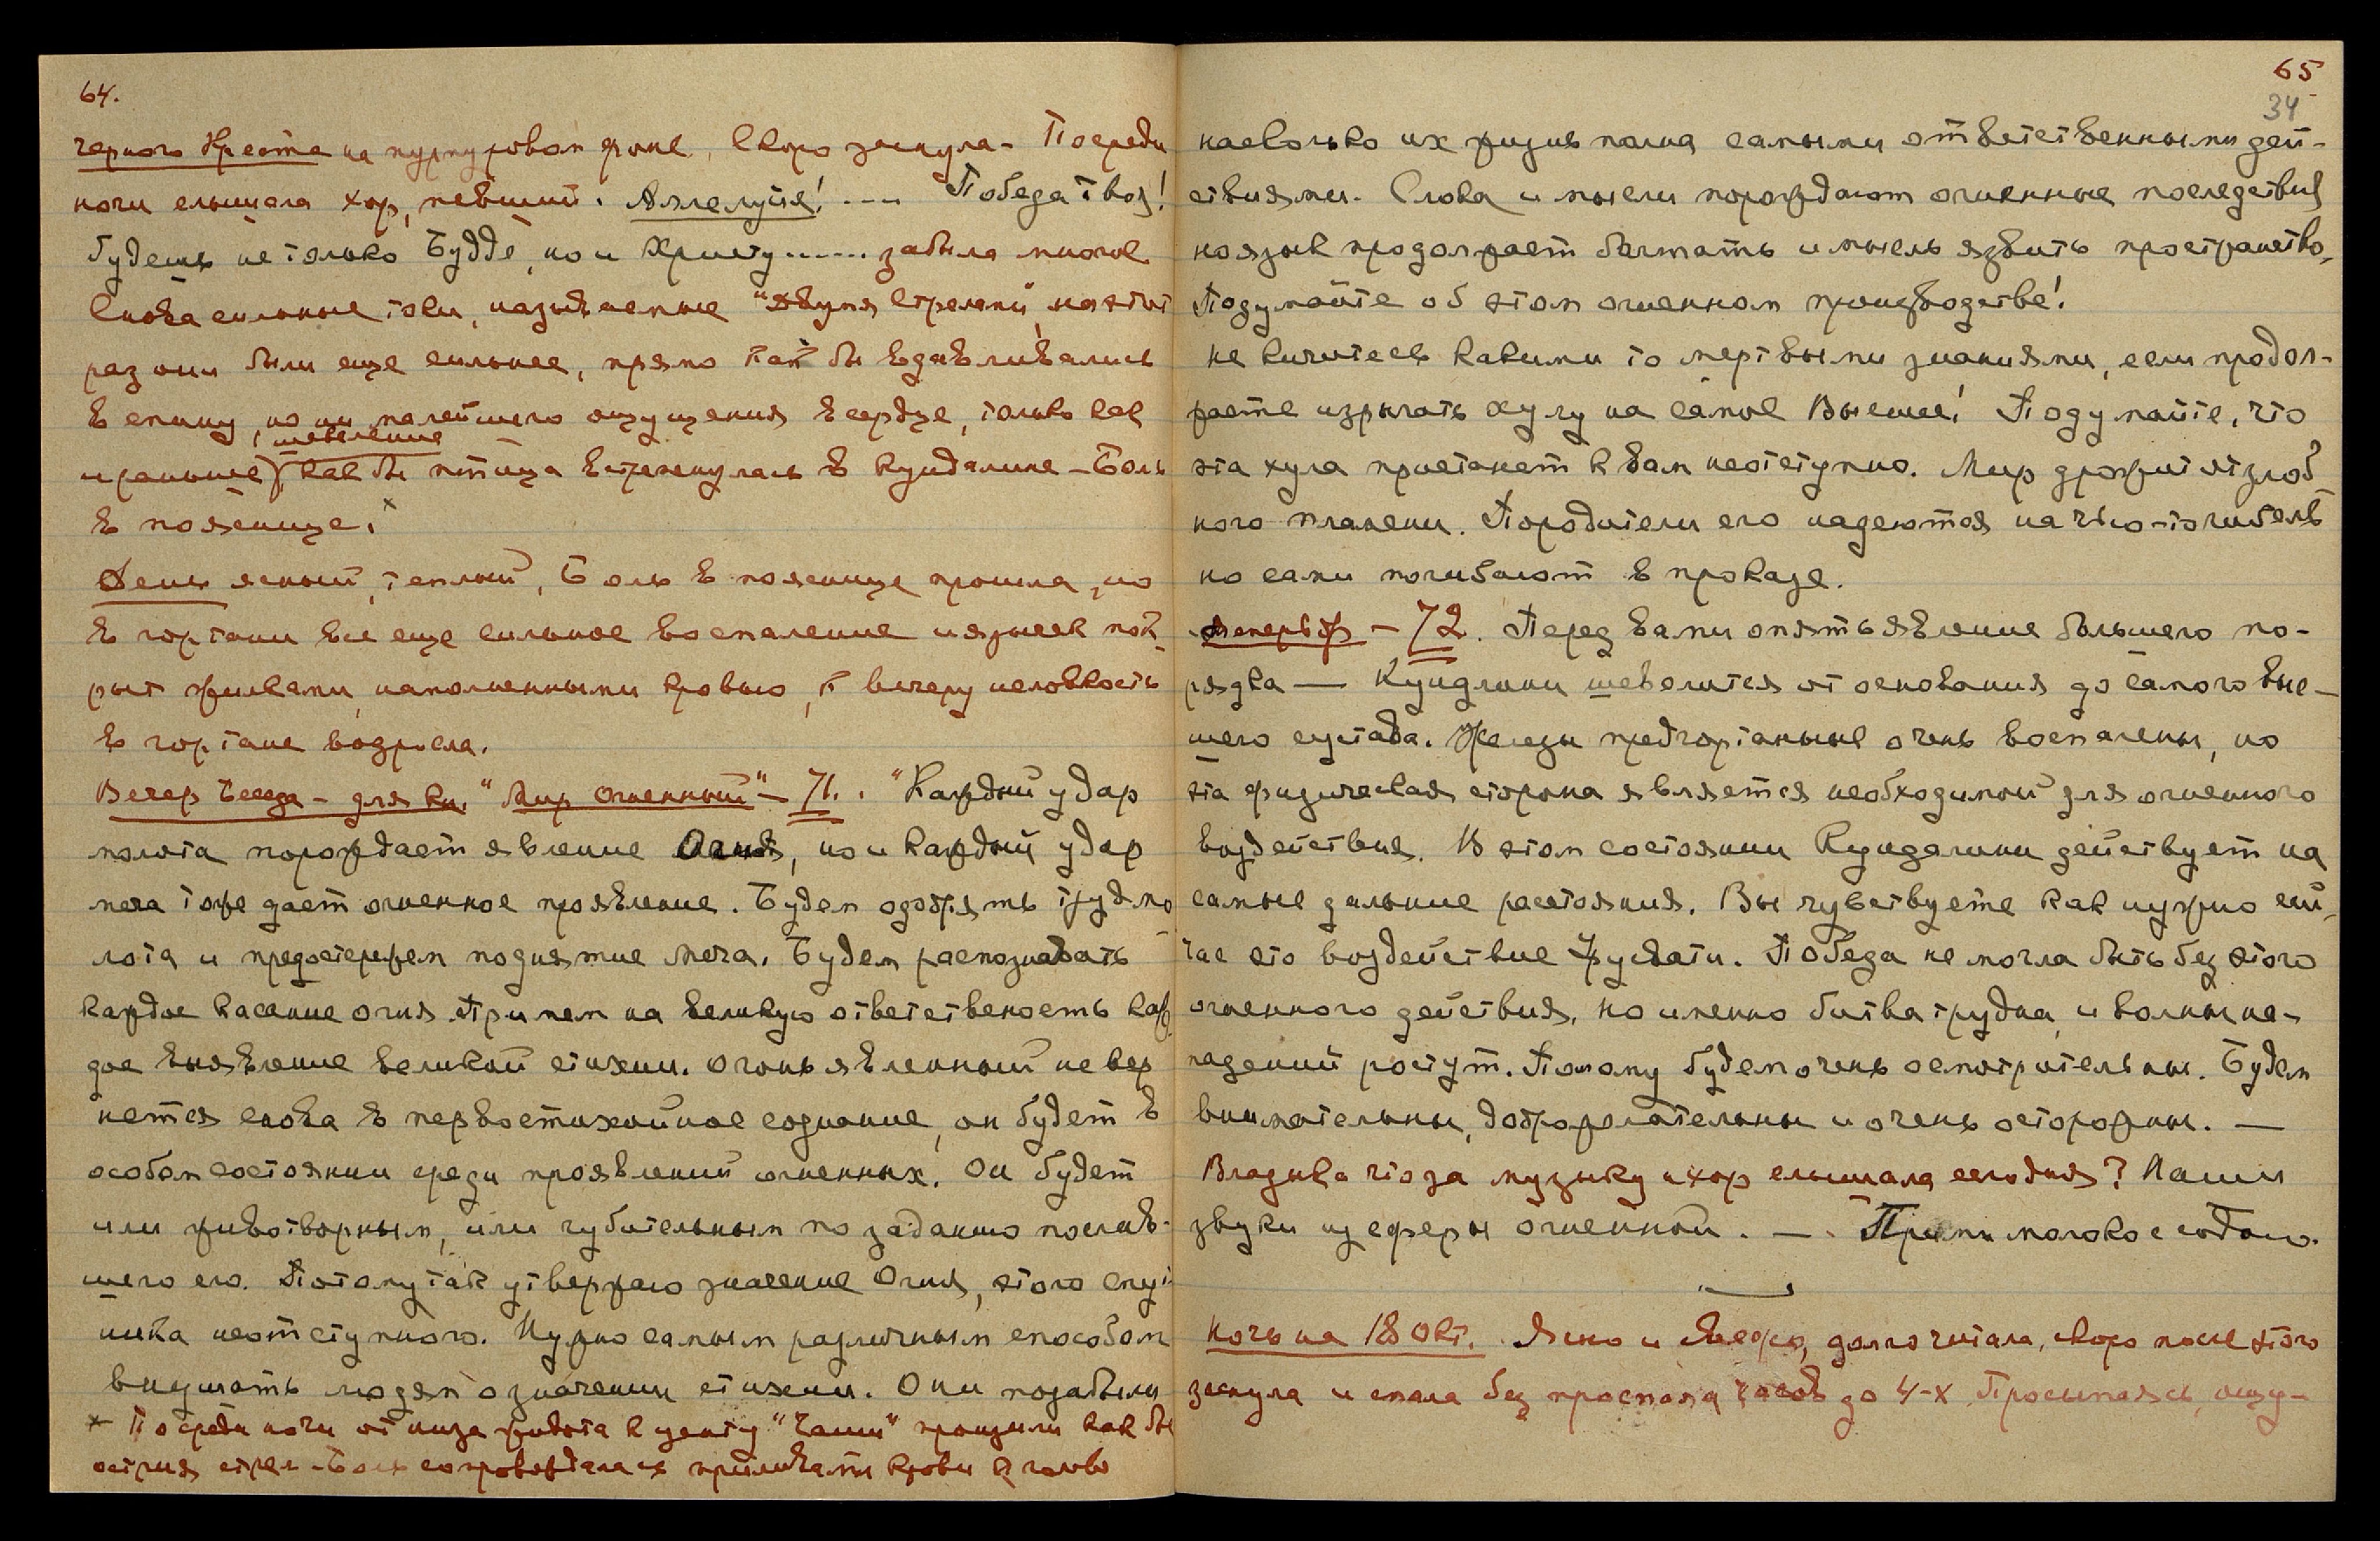 64.
черного Креста на пурпуровом фоне. Скоро заснула – Посреди
ночи слышала хор, певший: Аллелуйя! --- Победа твоя!
будешь не только Будде, но и Христу...... забыла многое.
Снова сильные токи, называемые "двумя Стрелами", на этот
раз они были еще сильнее, прямо как бы вдавливались
в спину, но ни малейшего ощущения в сердце, только как
и раньше), шевеление как бы птица встрепенулась в кундалине – Боль
в пояснице. ×
День ясный, теплый, Боль в пояснице прошла, но
в гортани все еще сильное воспаление и язычек пок-
рыт жилками, наполненными кровью, к вечеру неловкость
в гортане возросла.
Вечер Беседа – для кн. "Мир Огненный" – 71. "Каждый удар
молота порождает явление Огня, но и каждый удар
меча тоже дает огненное проявление. Будем одобрять труд мо-
лота и предостережем поднятие меча. Будем распознавать
каждое касание огня. Примем на великую ответственость каж-
дое выявление великой стихии. Огонь явленный не вер-
нется снова в первостихийное сознание, он будет в
особом состоянии среди проявлений огненных. Он будет
или животворным, или губительным по заданию послав-
шего его. Потому так утверждаю значение Огня, этого спут-
ника неотступного. Нужно самым различным способом
внушать людям о значении стихии. Они позабыли
× Посреди ночи от низа живота к центу "Чаши" прошли как бы
острия стрел – Боль сопровождалась приливами крови к голове
65
34
насколько их жизнь полна самыми ответственными дей-
ствиями. Слова и мысли порождают огненные последствия
но язык продолжает болтать и мысль язвить пространство.
Подумайте об этом огненном производстве!
не кичитесь какими то мертвыми знаниями, если продол-
жаете изрыгать хулу на самое Высшее! Подумайте, что
эта хула пристанет к вам неотступно. Мир дрожит от злоб-
ного пламени. Породители его надеются на чью-то гибель
но сами погибают в проказе.
– 72. Перед вами опять явление большего по-
рядка — Кундалини шевелится от основания до самого выс-
шего сустава. Железы предгортаныые очень воспалены, но
эта физическая сторона является необходимой для огненного
воздействия. В этом состоянии Кундалини действует на
самые дальние расстояния. Вы чувствуете как нужно сей-
час это воздействие Урусвати. Победа не могла быть без этого
огненного действия. но именно битва трудна, и волны на-
падений ростут. Потому будем очень осмотрительны. Будем
внимательны, доброжелательны и очень осторожны. —
Владыка что за музыку и хор слышала сегодня? Наши
звуки из сферы огненной. — Прими молоко с содою.
Ночь на 18 Окт. Ясно и свежо, долго читала, скоро после этого
заснула и спала без просыпа часов до 4-х Просыпаясь, ощу-